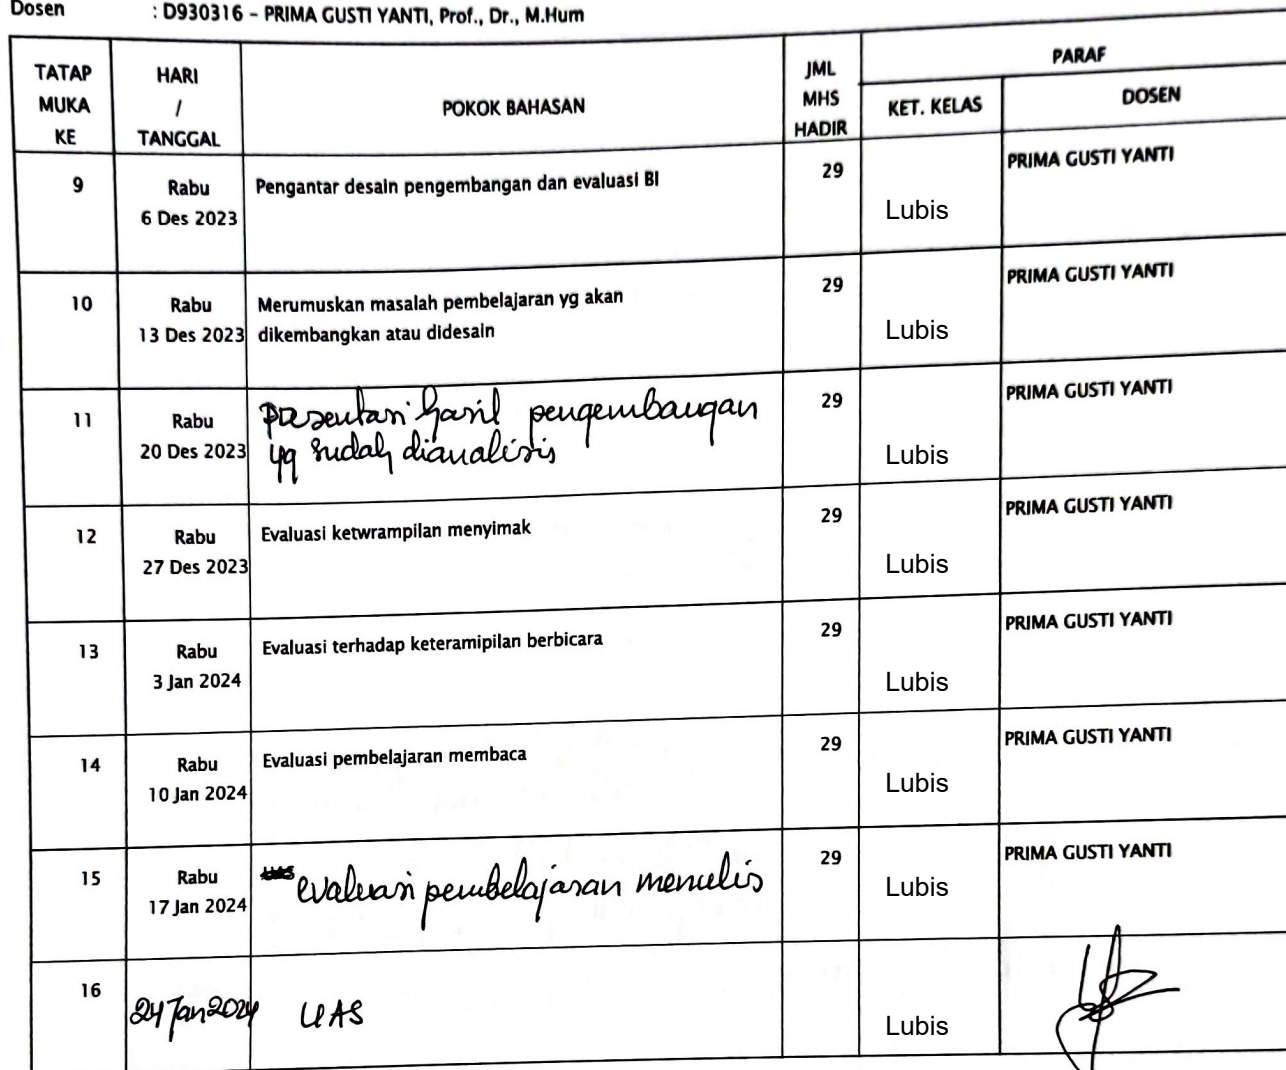 Dosen : D930316 - PRIMA GUSTI YANTI, Prof., Dr., M.Hum
TATAP MUKA KE HARI / TANGGAL POKOK BAHASAN JML MHS HADIR PARAF
KET. KELAS DOSEN
9 Rabu 6 Des 2023 Pengantar desain pengembangan dan evaluasi BI 29 Lubis PRIMA GUSTI YANTI
10 Rabu 13 Des 2023 Merumuskan masalah pembelajaran yg akan 29 Lubis PRIMA GUSTI YANTI
dikembangkan atau didesain
11 Rabu 20 Des 2023 Presentasi hasil pengembangan 29 Lubis PRIMA GUSTI YANTI
yg sudah dianalisis
12 Rabu 27 Des 2023 Evaluasi ketwrampilan menyimak 29 Lubis PRIMA GUSTI YANTI
13 Rabu 3 Jan 2024 Evaluasi terhadap keteramipilan berbicara 29 Lubis PRIMA GUSTI YANTI
14 Rabu 10 Jan 2024 Evaluasi pembelajaran membaca 29 Lubis PRIMA GUSTI YANTI
15 Rabu 17 Jan 2024 evaluasi pembelajaran menulis 29 Lubis PRIMA GUSTI YANTI
16 24 Jan 2024 UAS Lubis